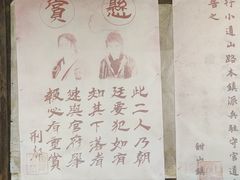 行小道山路本鎮派兵駐守官道
懸賞
此二人乃朝
廷要犯如有
知其下落者
速與官府舉
報必有重賞
刑部